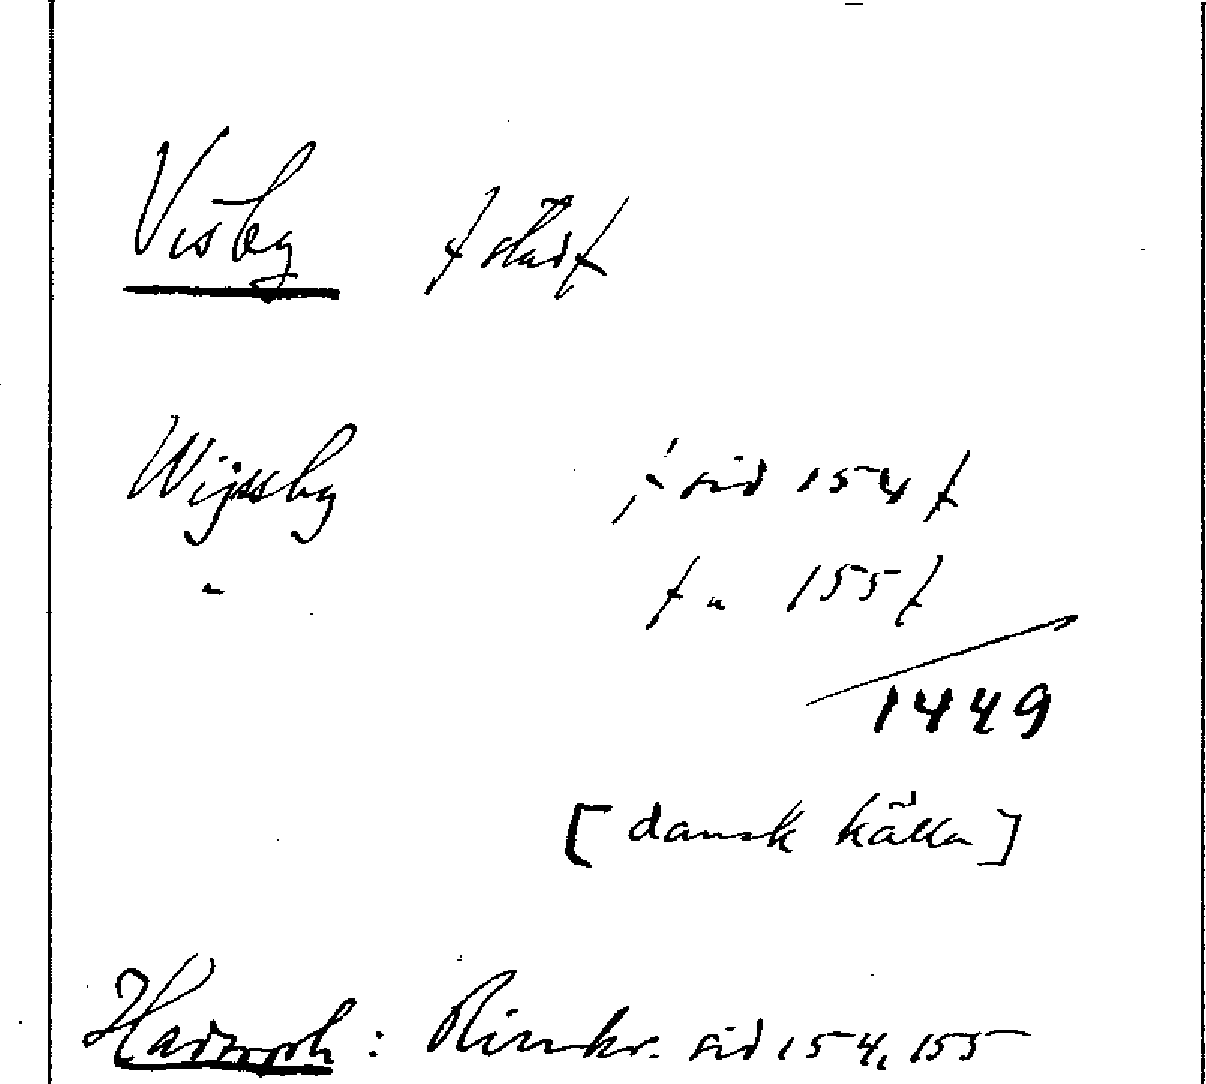 Visby /stad/
Wijssby /sid 154/
" / " 155/
1449
[dansk källa]
Hadorph: Rimkr. sid 154, 155